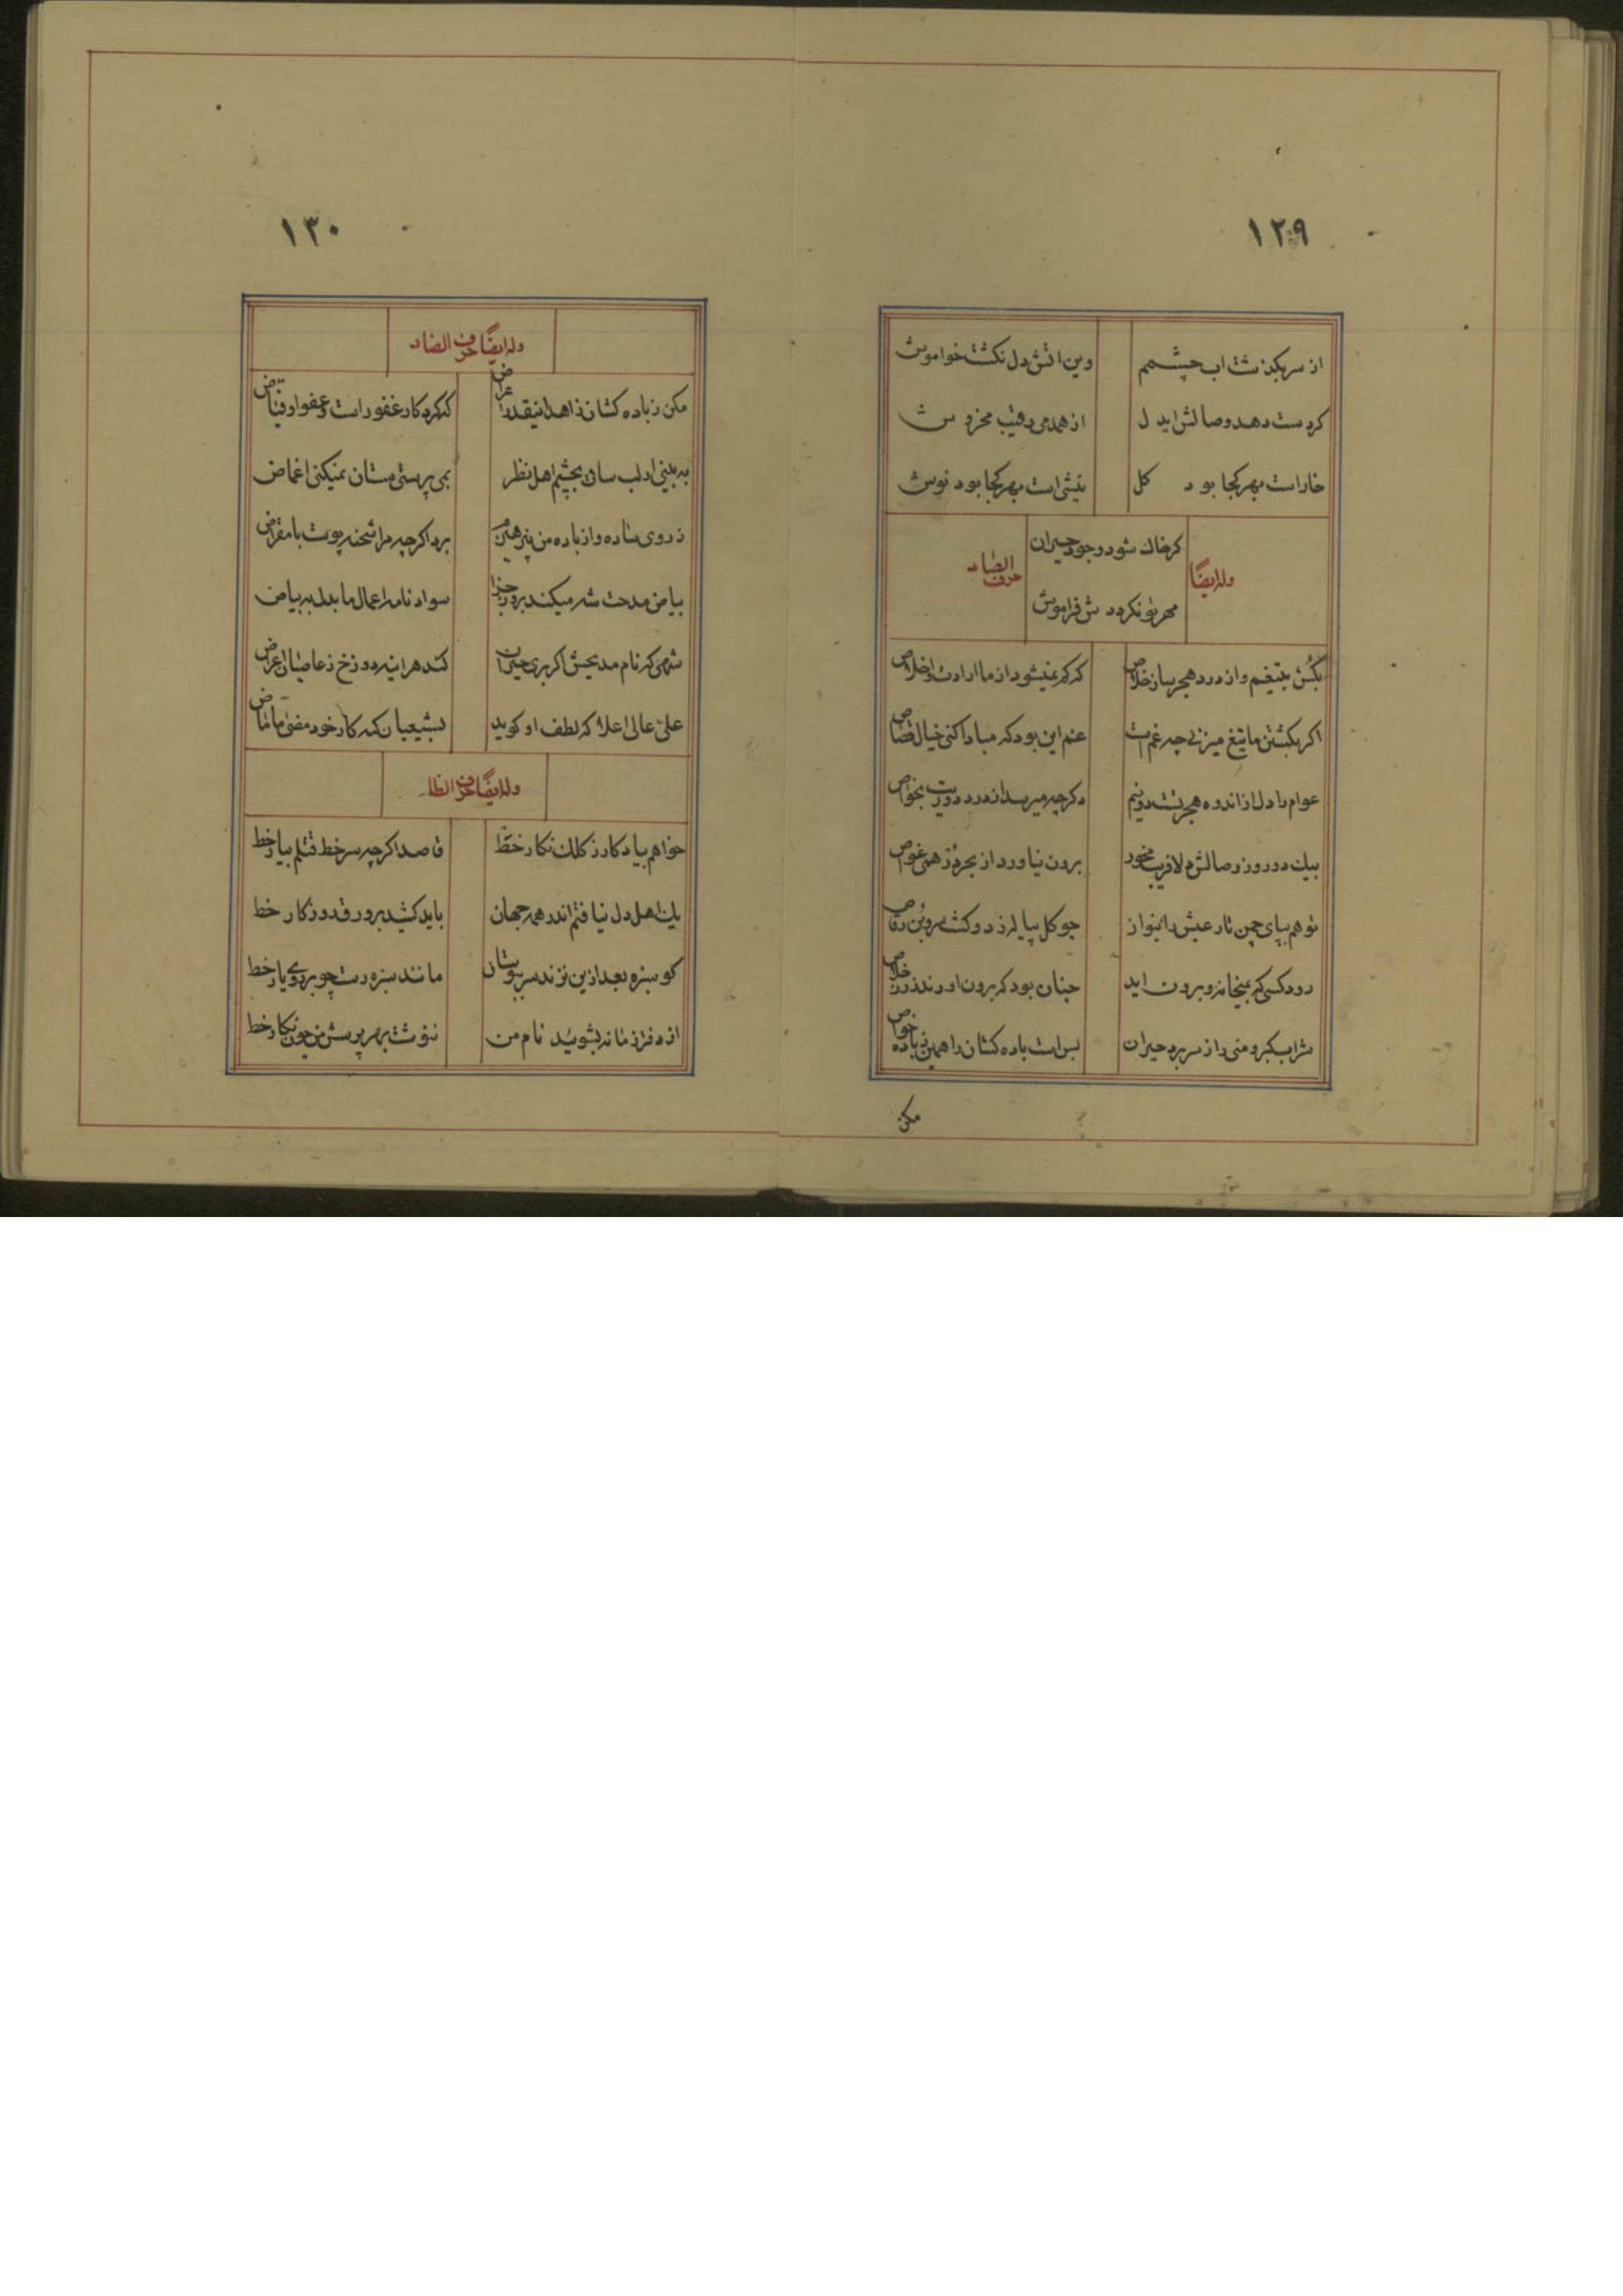 ۱۲۹
از سر بکذشت اب چشمم وین اتش دل نکشت خواموش
کر دست دهد وصالش ایدل از همدمی رقیب مخروش
خار است بهر کجا بود کل نیشی است بهر کجا بود نوش
وله ایضًا کر خاک شود وجود حیران حرف الصاد
مهر تو نکرددش فراموش
بکش بتیغم و از درد هجر ساز خلاص که کم نمیشود از ما ارادت و اخلاص
اکر بکشتن ما تیغ میزنی چه غم است غمم این بود که مبادا کنی خیال قصاص
عوام را دل از اندوه هجر تست دونیم دکر چه میرسد از درد دوریت بخواص
بیک دو روز وصالش دلا فریب مخور برون نیاورد از بحر در همی غواص
تو هم بپای چمن تار عیش را بنواز چو کل پیاله زد و کشت سرو بن رقاص
رود کسی که بمیخانه و برون اید چنان بود که برون اورندش از خلاص
شراب کبر و منی را ز سر برد حیران بس است باده کشان را همین ز باده خواص
مکن
۱۳۰
وله ایضًا حرف الضاد
مکن ز باده کشان زاهدا اینقدر اعراض که کردکار غفور است و عفو او فیاض
به بینی ار لب ساقی بچشم اهل نظر بمی پرستی مستان نمیکنی اغماض
ز روی ساده و از باده من نپرهیزم برد اکر چه مرا شحنه پوست با مقراض
بیاض مدحت شه میکند بروز جزا سواد نامه اعمال ما بدل به بیاض
شهی که نام مدیحش اکر بری حیران کند هراینه دوزخ ز عاصیان اعراض
علی عالی اعلا که لطف او کوید بشیعیان که کار خود مضی ما ماض
وله ایضًا حرف الطا
خواهم بیادکار ز کلک نکار خط قاصد اکر چه سر خط قتلم بیار خط
یک اهل دل نیافتم اندر همه جهان باید کشید بر ورق روزکار خط
کو سبزه بعد ازین نزند سر ببوستان مانند سبزه رست چو بر روی یار خط
از دفتر زمانه بشوئید نام من ننوشت بهر پرسش من چون نکار خط